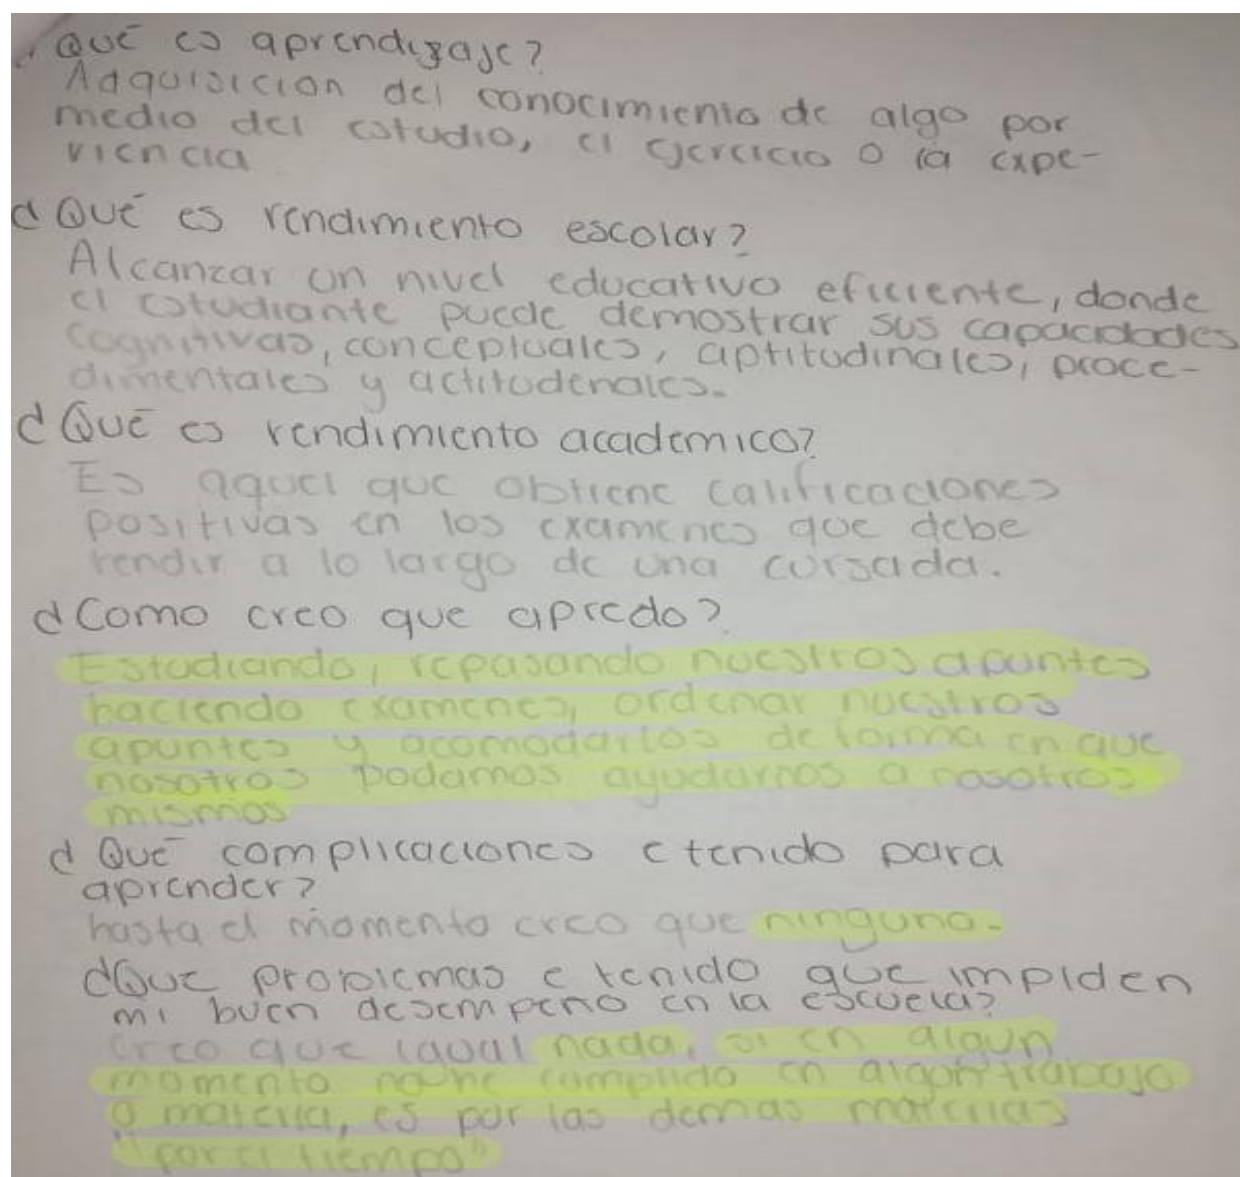 ¿Qué es aprendizaje?
Adquisición del conocimiento de algo por
medio del estudio, el ejercicio o la expe-
riencia
¿Qué es rendimiento escolar?
Alcanzar un nivel educativo eficiente, donde
el estudiante puede demostrar sus capacidades
cognitivas, conceptuales, aptitudinales, proce-
dimentales y actitudenales.
¿Qué es rendimiento academico?
Es aquel que obtiene calificaciones
positivas en los examenes que debe
rendir a lo largo de una cursada.
¿Como creo que apredo?
Estudiando, repasando nuestros apuntes
haciendo examenes, ordenar nuestros
apuntes y acomodarlos de forma en que
nosotros podamos ayudarnos a nosotros
mismos
¿Qué complicaciones e tenido para
aprender?
hasta el momento creo que ninguno.
¿Que problemas e tenido que impiden
mi buen desempeño en la escuela?
Creo que igual nada, si en algun
momento no he cumplido en algun trabajo
o materia, es por las demas materias
"por el tiempo"